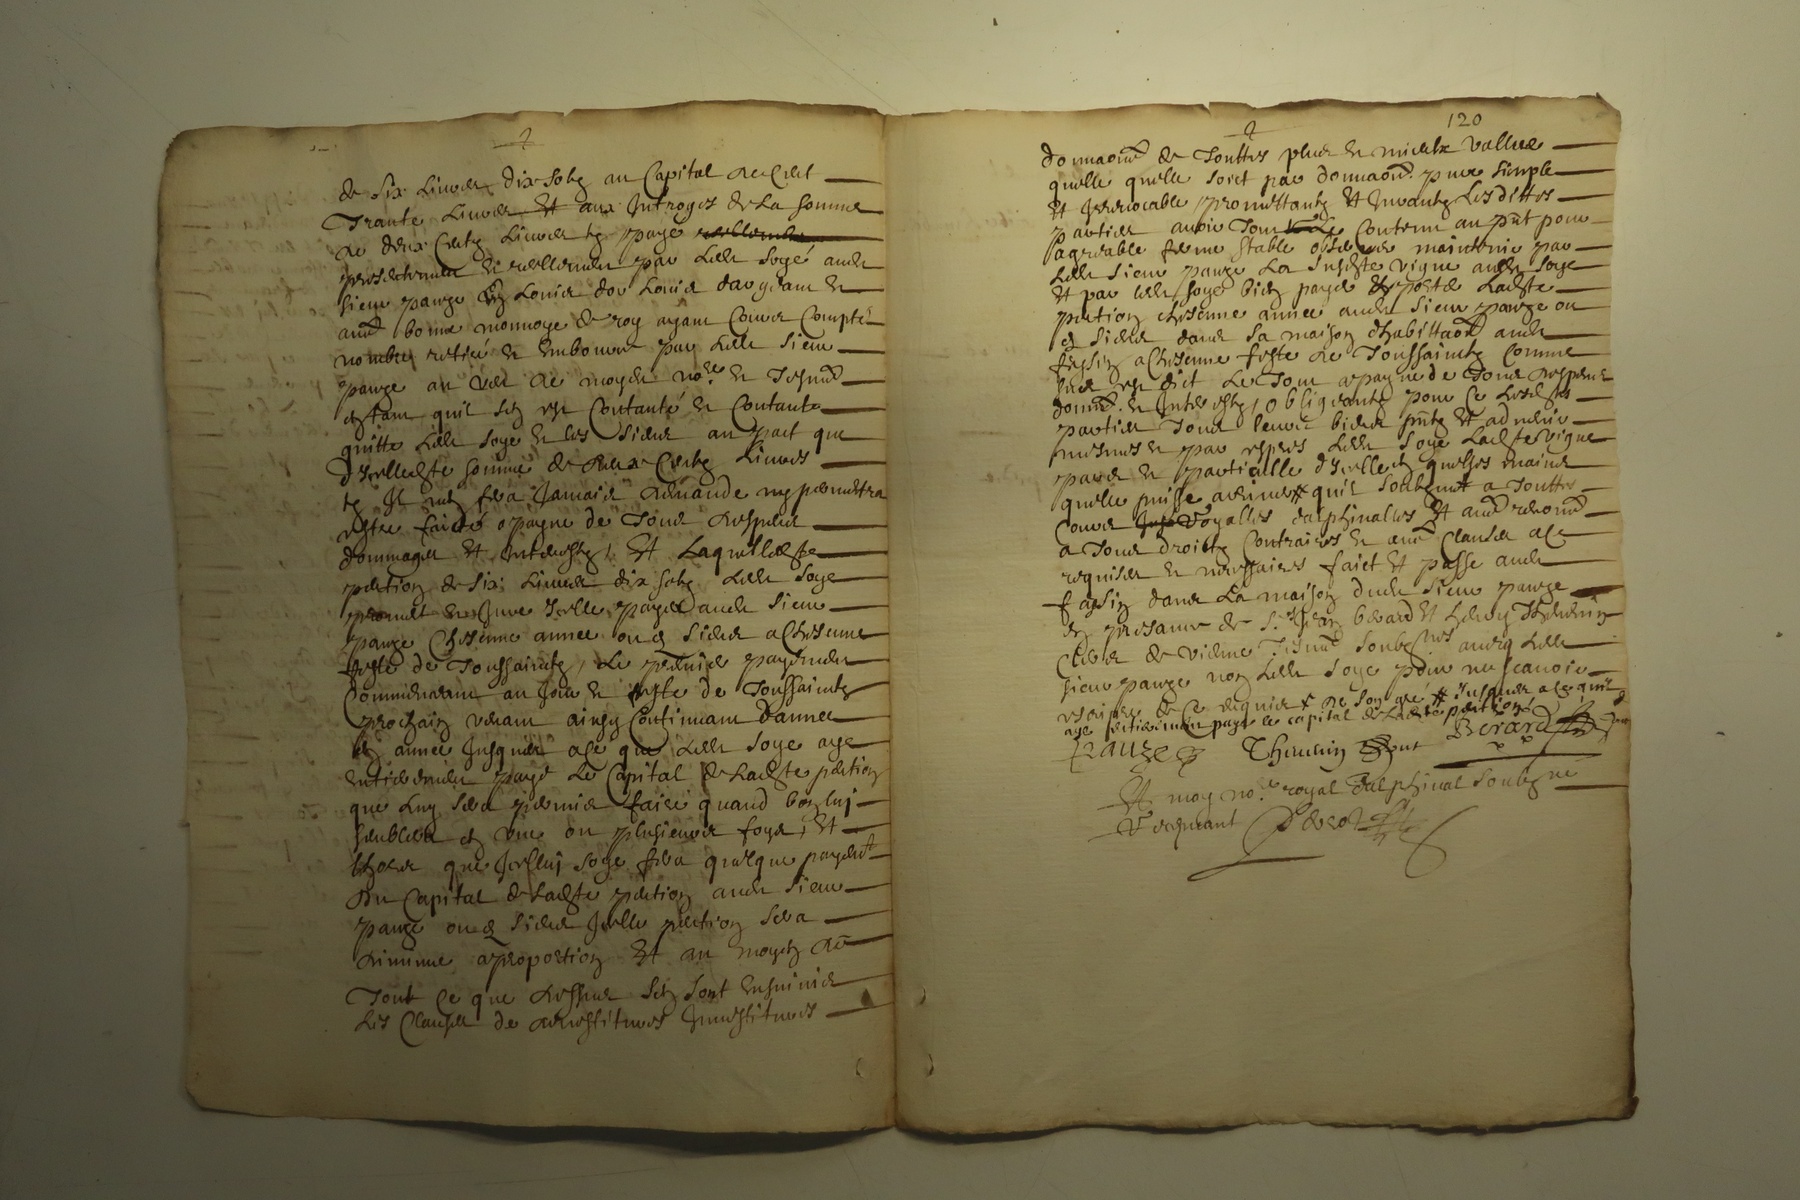 de six livres dix solz au Capital de Cent
Trante Livres Et aux Introges de la somme
de deux Centz Livres tz paye reellement
presentement et reellement par Ledt Soye audt
sieur pauze en Louis dor Louis dargeant et
autre bonne monnoye de roy ayant Cours Compté
nombré retiré et Embourcé par Ledt sieur
pauze au veu de moydt nore et Tesmz
estant quil sen est Contanté et Contante
quitte Ledt Soye et les siens au pact que
dIcelledte somme de deux Centz Livres
tz Il nen fera Jamais demande ny permettra
estre faicte apayne de Tous despens
dommages Et Interestz, Et Laquelledte
pention de six Livres dix solz Ledt Soye
promet et Jure Icelle payer audt sieur
pauze Chesenne annee ou es siens a Chesenne
feste de Toussaintz, Le premier payement
Commencant au Jour et feste de Toussaintz
prochain venant ainsy Continuant dannee
en annee Jusques ace que Ledt Soye aye
entierement payé Le Capital de Ladte pention
que Luy sera permis faire quand bon luj
semblera en une ou plusieurs foys, Et
lhors que Jcelluj Soye fera quelque payemt
du Capital de Ladte pention audt sieur
pauze ou es siens Jcelle pention sera
diminue aproportion Et au moyen de
Tout Ce que dessus sen sont Ensuivies
Les Clauses de devestitures Jnvestitures
120
donnaon de Touttes plus et mieux vallue
quelle quelle soict par donnaon pure simple
Et Jrrevocable promettantz Et Juvantz Lesdittes
parties avoir Tout Le Contenu au pnt pour
agreable ferme stable observer maintenir par
Ledt sieur pauze La susdte vigne audt Soye
Et par ledt Soye bien payer & porter Ladte
pention chesenne annee audt sieur pauze ou
es siens dans sa maison dhabittaon audt
fessin a Chesenne feste de Toussaintz Comme
sus est dict Le Tout apayne de Tous despens
domm. et Interestz, obligeantz pour Ce Lesdtes
parties Tous leurs biens pntz Et advenir
mesmes et par expres Ledt Soye Ladte vigne
pars et particulle dIcelle en quelles mains
quelle puisse advenir # quil soubzmet a Touttes
Cours royalles dalphinalles Et autre renonc
a Tous droictz Contraires et autre Clauses ace
requises et necessaires faict Et passe audt
fessin dans La maison dudt sieur pauze
en presance de Sr Jean berard Et
Clerc de vienne Tesmz soubznes avecq Ledt
sieur pauze non Ledt Soye pour ne scavoir
escripre de Ce requis # De son gre # Jusques ace quil
aye entierement paye le capital de Ladte pention
Pauze Thevenin pnt Berard
Et moy nore royal Dalphinal soubzne
Recepvant